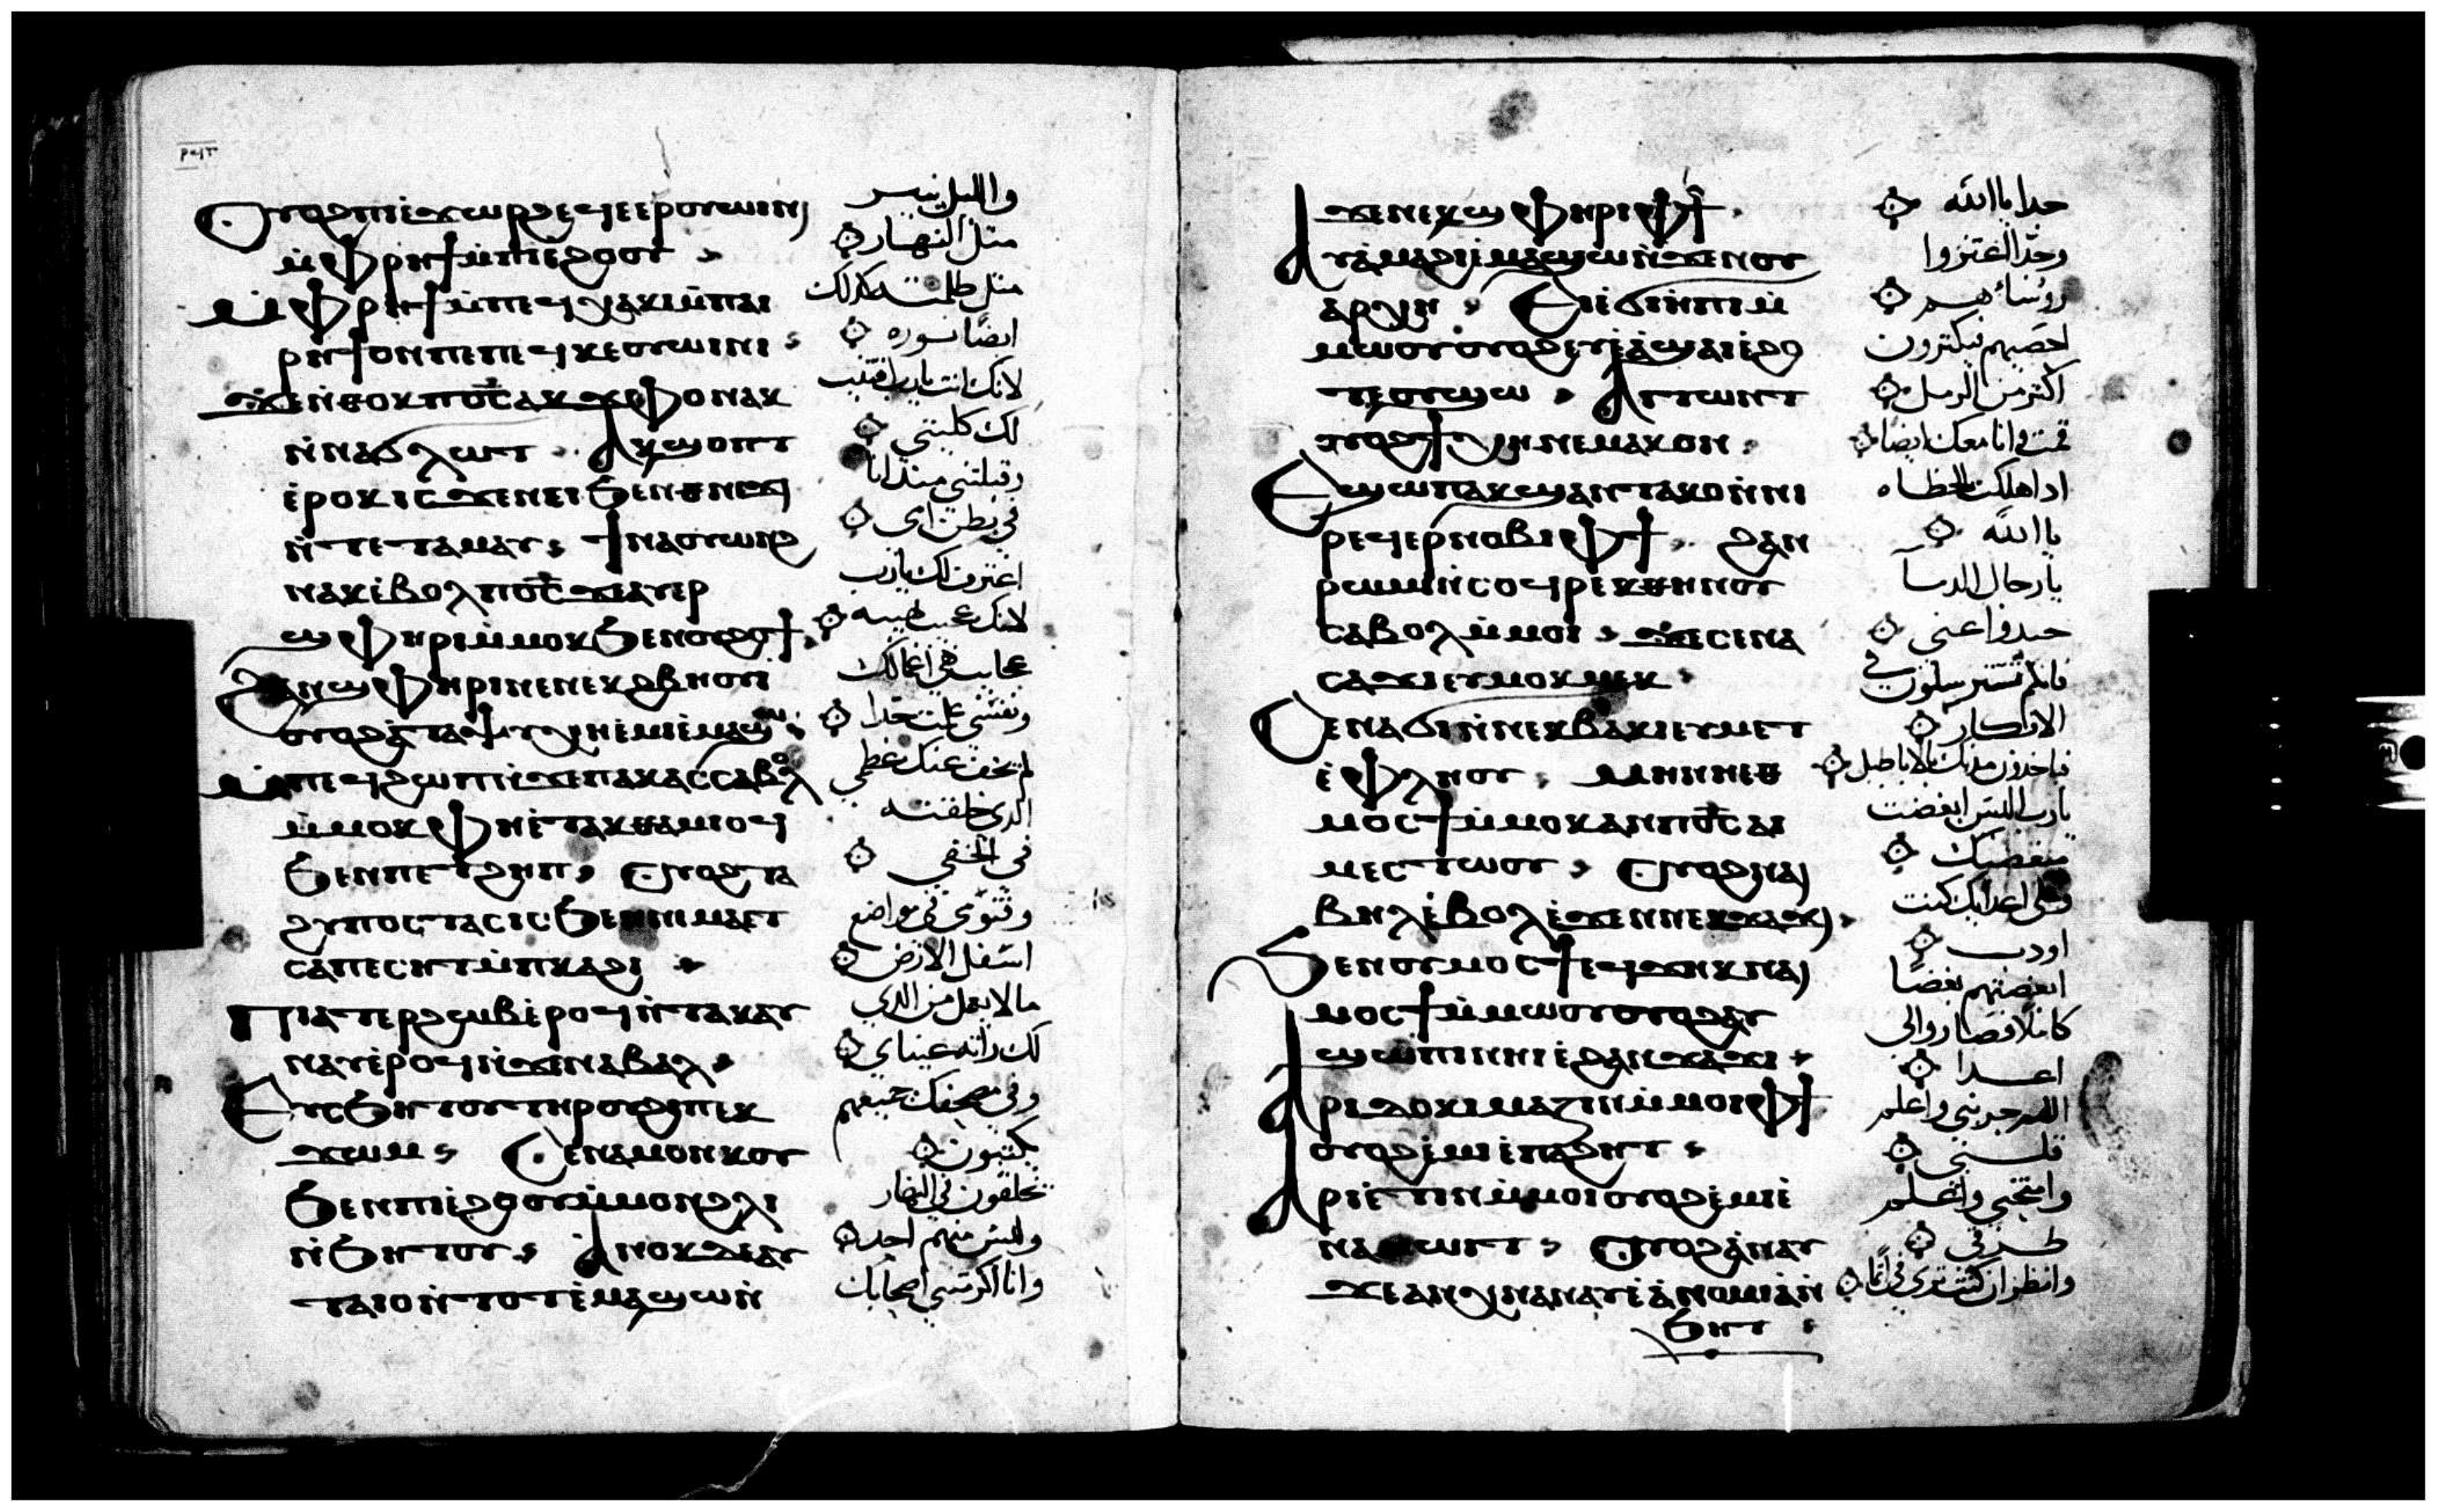 Ⲟⲩⲟϩ ⲡⲓⲉ̀ϫⲱⲣϩ ⲉϥⲉⲉⲣⲟⲩⲱⲓⲛⲓ
ⲙ̀ⲫⲣⲏϯ ⲙ̀ⲡⲓⲉϩⲟⲟⲩ
ⲙ̀ⲫⲣⲏϯ ⲙ̀ⲡⲉϥⲭⲁⲕⲓ ⲙ̀ⲡⲁⲓ
ⲣⲏϯ ⲟⲛ ⲡⲉ ⲡⲉϥⲕⲉⲟⲩⲱⲓⲛⲓ
ϫⲉ ⲛ̀ⲑⲟⲕ ⲡⲟ̅ⲥ̅ ⲁⲕϫⲫⲟ ⲛⲁⲕ
ⲛ̀ⲛⲁϭⲗⲱⲧ Ⲁⲕϣⲟⲡⲧ
ⲉ̀ⲣⲟⲕ ⲓⲥϫⲉⲛ ⲉⲓ ϧⲉⲛ ⲑⲛⲉϫⲓ
ⲛ̀ⲧⲉ ⲧⲁⲙⲁⲩ Ϯⲛⲁⲟⲩⲱⲛϩ
ⲛⲁⲕ ⲉ̀ⲃⲟⲗ ⲡⲟ̅ⲥ̅ ϫⲉ ⲁⲩⲉⲣ
ϣⲫⲏⲣⲓ ⲙ̀ⲙⲟⲕ ϧⲉⲛ ⲟⲩϩⲟϯ
ϩⲁⲛϣⲫⲏⲣⲓ ⲛⲉ ⲛⲉⲕϩⲃⲏⲟⲩⲓ
ⲟⲩⲟϩ ⲁ̀ ⲧⲁⲯⲩⲭⲏ ⲉ̀ⲙⲓ ⲉ̀ⲙⲁϣⲱ
ⲙ̀ⲡⲉϥϩⲱⲡ ⲛ̀ϫⲉ ⲡⲁⲕⲁⲥ ⲥⲁⲃⲟⲗ
ⲙ̀ⲙⲟⲕ ⲫⲏ ⲉ̀ⲧⲁⲕⲑⲁⲙⲓⲟϥ
ϧⲉⲛ ⲡⲉⲧϩⲏⲡ Ⲟⲩⲟϩ ⲧⲁ
ϩⲩⲡⲟⲥⲧⲁⲥⲓⲥ ϧⲉⲛ ⲛⲓⲙⲁ ⲉⲧ
ⲥⲁⲡⲉⲥⲏⲧ ⲙ̀ⲡⲕⲁϩⲓ
Ⲡⲓⲁⲧⲉⲣϩⲱⲃ ⲉ̀ⲣⲟϥ ⲛ̀ⲧⲁⲕ ⲁⲩ
ⲛⲁⲩ ⲉ̀ⲣⲟϥ ⲛ̀ϫⲉ ⲛⲁⲃⲁⲗ
Ⲉⲩⲥϧⲏⲧⲟⲩ ⲧⲏⲣⲟⲩ ϩⲓ ⲡⲉⲕ
ϫⲱⲙ Ⲥⲉⲛⲁⲙⲟⲛⲕⲟⲩ
ϧⲉⲛ ⲡⲓⲉ̀ϩⲟⲟⲩ ⲙ̀ⲙⲟⲛ ϩⲗⲓ
ⲛ̀ϧⲏⲧⲟⲩ Ⲁⲛⲟⲕ ⲇⲉ ⲁⲩ
ⲧⲁⲓⲟ ⲛ̀ⲧⲟⲧ ⲉ̀ⲙⲁϣⲱ ⲛ̀
والليل ينير
مثل النهار
مثل ظلمته كذلك
ايضًا نوره
لانك انت يارب اقتنيت
لك كليتي
وقبلتني منذ انا
في بطن امي
اعترف لك يارب
لانك عجب لهيبه
عجايب هي اعمالك
ونفسي علمت جدا
لم يخف عنك عظمي
الدي خلقته
في الخفي
وقنومي في مواضع
اسفل الارض
مالا يعمل من الدي
لك راته عيناي
وفي مصحفك جميعهم
يكتبون
يخلقون في النهار
وليس منهم احد
وانا اكرمتني اصحابك
ϫⲉ ⲛⲉⲕϣⲫⲏⲣ ⲓ ⲫϯ
Ⲁⲩⲁ̀ⲙⲁϩⲓ ⲉ̀ⲙⲁϣⲱ ⲛ̀ϫⲉ ⲛⲟⲩ
ⲁⲣⲭⲏ Ⲉⲓⲉ̀ϭⲓⲏⲡⲓ ⲙ̀
ⲙⲱⲟⲩ ⲟⲩⲟϩ ⲉⲩⲉ̀ⲁ̀ϣⲁⲓ ⲉ̀ϩⲟ
ⲧⲉ ⲟⲩϣⲱ Ⲁⲧⲧⲱⲛⲧ
ⲟⲩⲟϩ ϯⲭⲏ ⲛⲉⲙⲁⲕ ⲟⲛ
Ⲉϣⲱⲡ ⲁⲕϣⲁⲛⲧⲁⲕⲟ ⲛ̀ⲛⲓ
ⲣⲉϥⲉⲣⲛⲟⲃⲓ ⲫϯ ϩⲁⲛ
ⲣⲱⲙⲓ ⲛ̀ⲥⲟϥ ⲣⲉⲕ ⲑⲏⲛⲟⲩ
ⲥⲁⲃⲟⲗ ⲙ̀ⲙⲟⲓ ϫⲉ ⲥⲉⲛⲁ
ⲥⲁϫⲓ ⲉⲩⲙⲟⲕⲙⲉⲕ
Ⲥⲉⲛⲁϭⲓ ⲛ̀ⲛⲉⲕⲃⲁⲕⲓ ⲉⲩⲙⲉⲧ
ⲉ̀ⲫⲗⲏⲟⲩ ⲙⲏ ⲛⲏⲉⲑ
ⲙⲟⲥϯ ⲙ̀ⲙⲟⲕ ⲁⲛ ⲡⲟ̅ⲥ̅ ⲁⲓ
ⲙⲉⲥⲧⲱⲟⲩ Ⲟⲩⲟϩ ⲛⲁⲓ
ⲃⲏⲗ ⲉ̀ⲃⲟⲗ ⲉ̀ϫⲉⲛ ⲛⲉⲕϫⲁϫⲓ
Ϧⲉⲛ ⲟⲩⲙⲟⲥϯ ⲉϥϫⲏⲕ ⲛⲁⲓ
ⲙⲟⲥϯ ⲙ̀ⲙⲱⲟⲩ ⲟⲩⲟϩ ⲁⲩ
ϣⲱⲡⲓ ⲛⲏⲓ ⲉ̀ϩⲁⲛϫⲁϫⲓ
Ⲁⲣⲓⲇⲟⲕⲓⲙⲁⲍⲓⲛ ⲙ̀ⲙⲟⲓ ⲫϯ
ⲟⲩⲟϩ ⲉ̀ⲙⲓ ⲉ̀ⲡⲁϩⲏⲧ
Ⲁⲣⲓⲉⲧⲓⲛ ⲙ̀ⲙⲟⲓ ⲟⲩⲟϩ ⲉ̀ⲙⲓ ⲉ̀
ⲛⲁⲙⲱⲓⲧ Ⲟⲩⲟϩ ⲁ̀ⲛⲁⲩ
ϫⲉ ⲁⲛ ⲭⲛⲁⲛⲁⲩ ⲉ̀ⲁ̀ⲛⲟⲙⲓⲁ ⲛ̀
ϧⲏⲧ
جدا يا الله
وجدّا اعتزوا
روسا هم
احصيهم فيكثرون
اكثر من الرمل
قمت وانا معك ايضا
ادا اهلكت الخطاه
يا الله
يا رجال الدما
حيدوا عني
الافكار
فياخذون مدنك بالاباطيل
يارب اليس ابغضت
مبغضيك
وعلى اعدايك كنت
اودب
ابغضتهم بغضًا
كاملا فصاروا لي
اعـدا
اللهم جربني واعلم
قلبي
وامتحني واعلم
طرقي